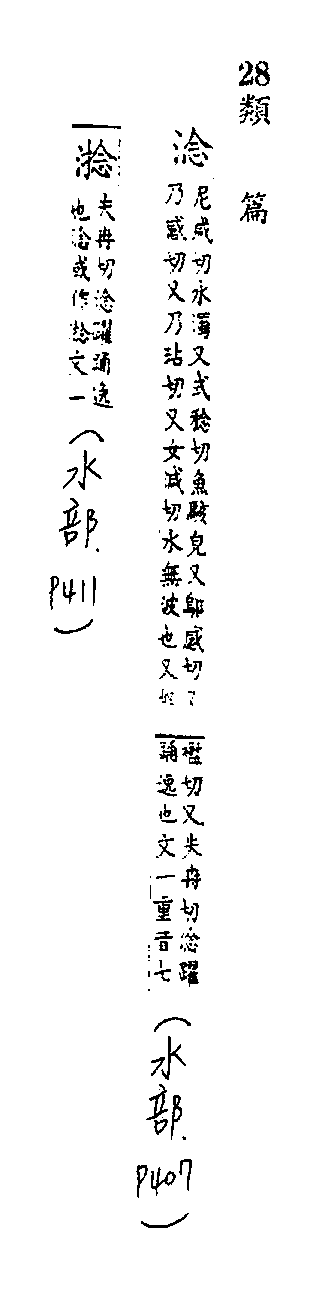 28類篇
淰
尼咸切水濁又式稔切魚駭皃又鄔感切
乃感切又乃玷切又女減切水無波也又
切又失冉切淰躍
誦逸也文一重音七
（水部.P407）
㴸
失冉切淰躍誦逸
也淰或作㴸文一
（水部.P411）